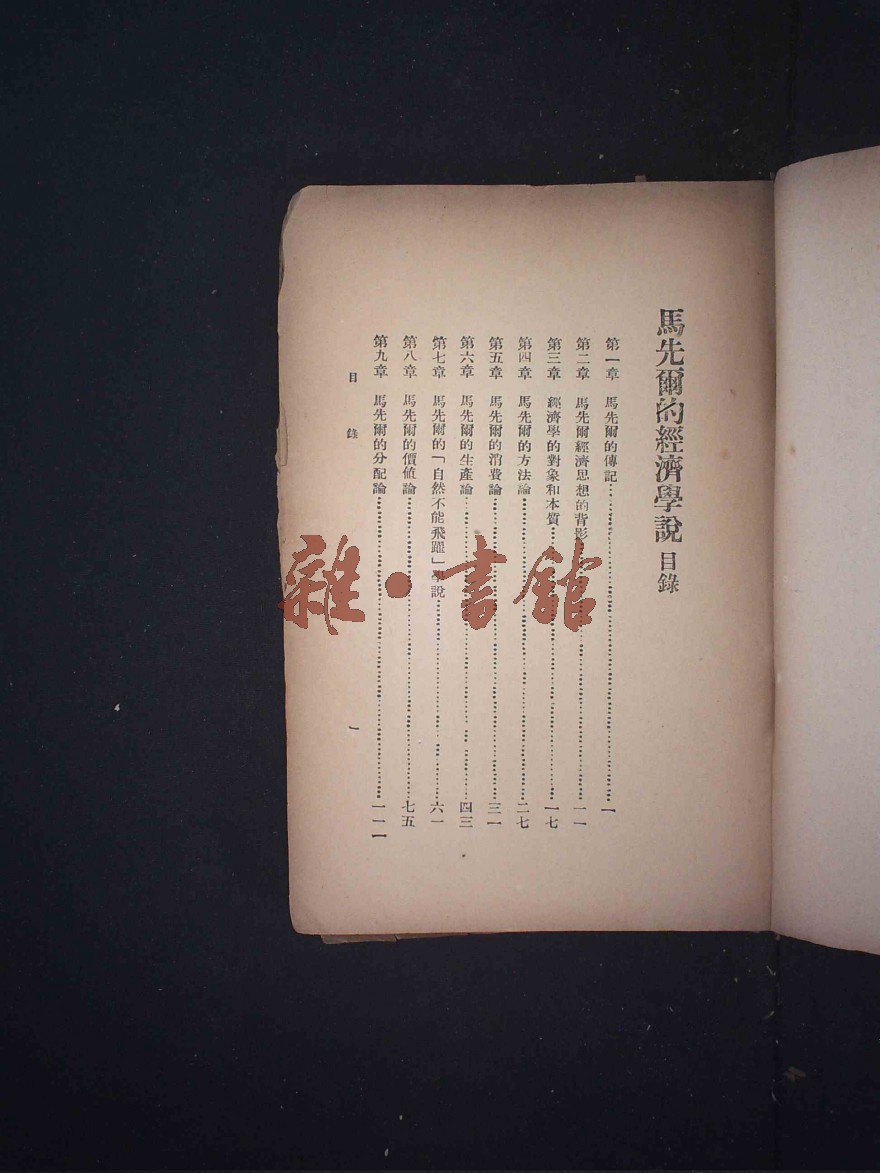 馬先爾的經濟學說 目錄
第一章 馬先爾的傳記……一
第二章 馬先爾經濟思想的背影……一一
第三章 經濟學的對象和本質……一七
第四章 馬先爾的方法論……二七
第五章 馬先爾的消費論……三一
第六章 馬先爾的生產論……四三
第七章 馬先爾的「自然不能飛躍」學說……六一
第八章 馬先爾的價値論……七五
第九章 馬先爾的分配論……一一一
目 錄 一
雜·書館